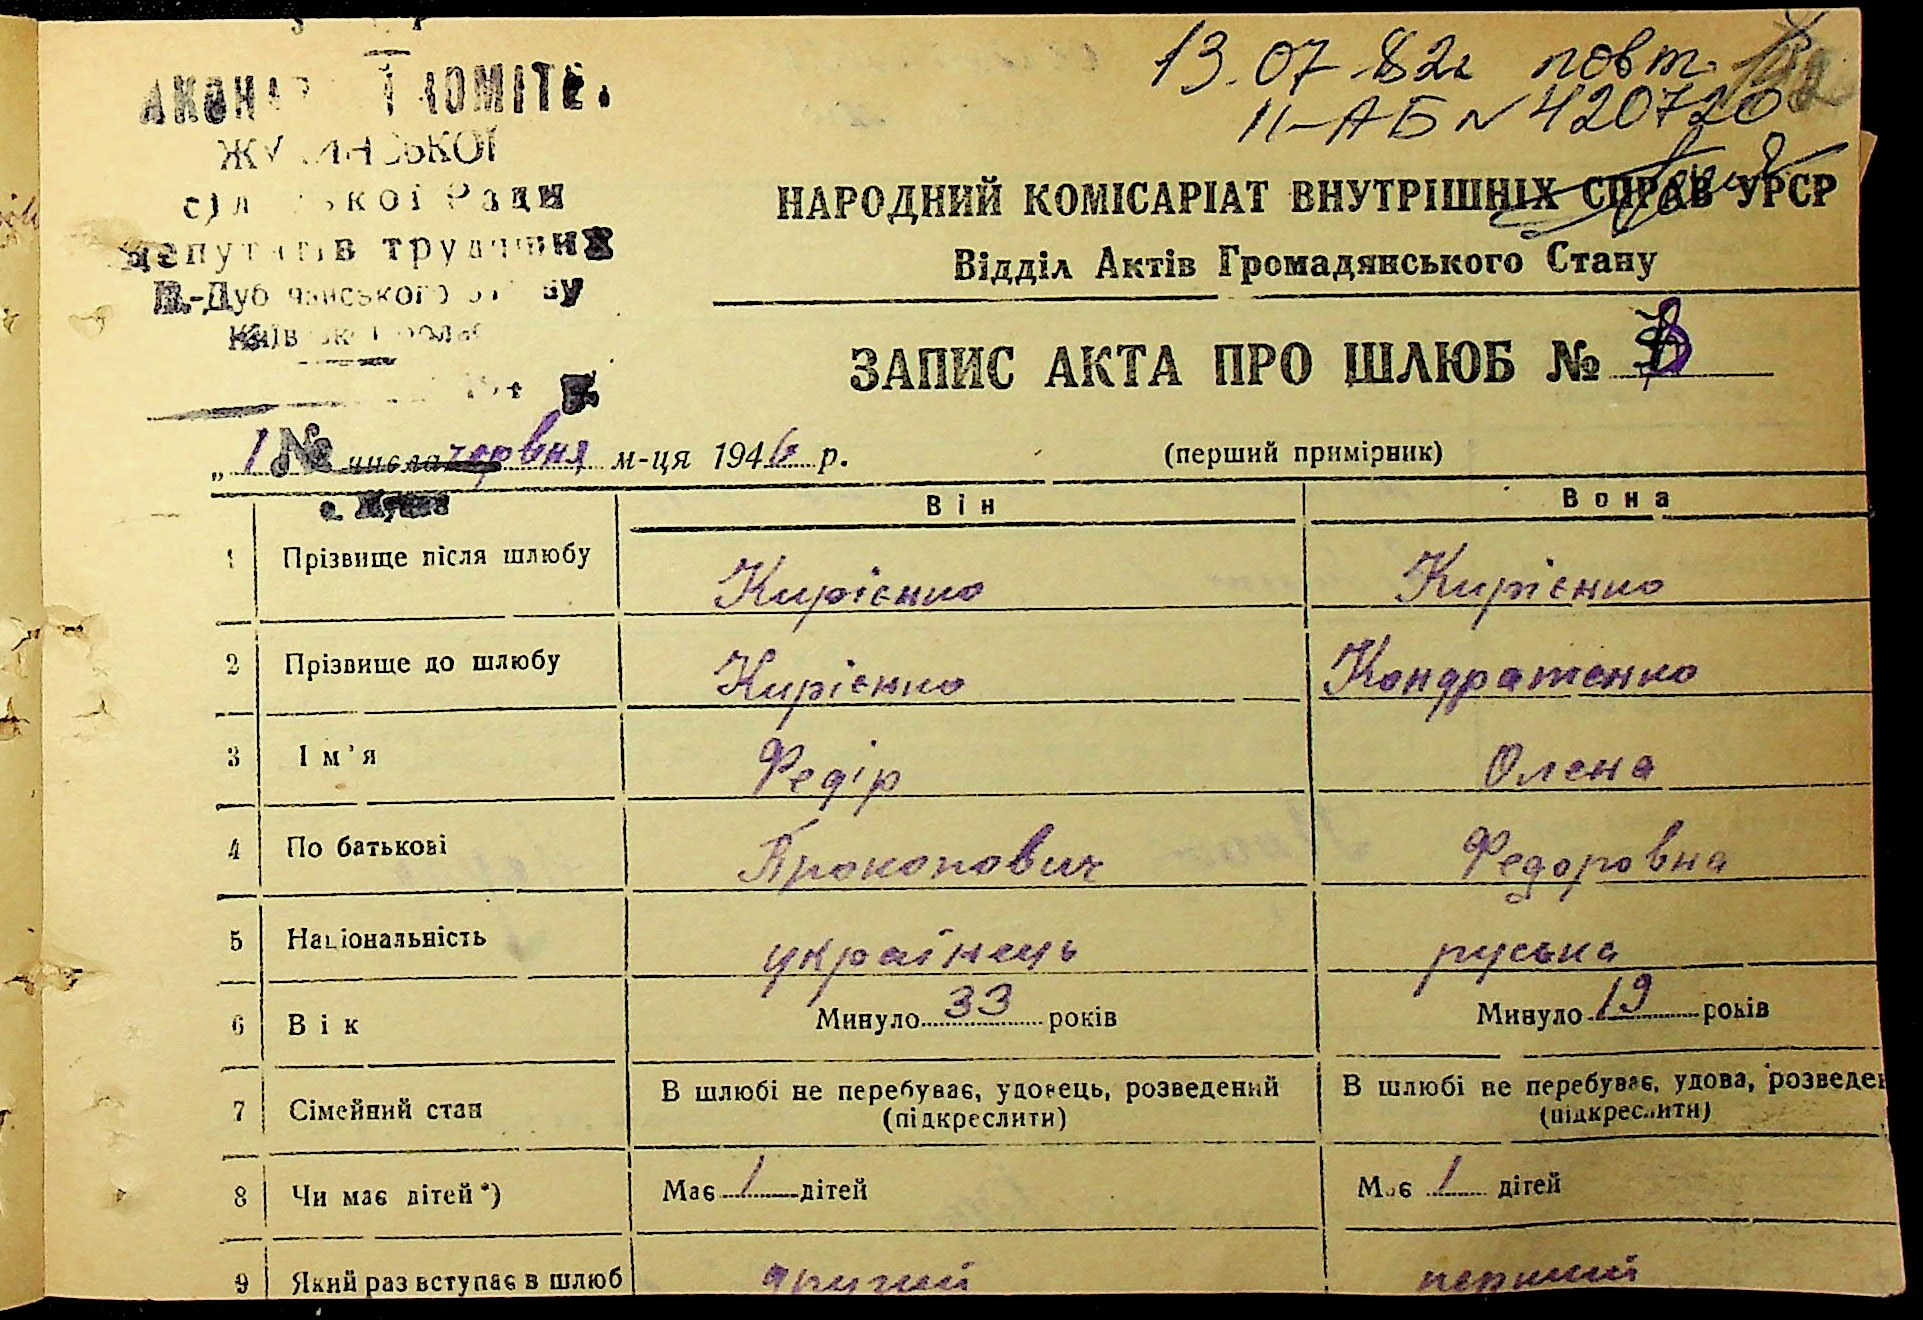 13.07.82г повт.
II-АБ № 420720
НАРОДНИЙ КОМІСАРІАТ ВНУТРІШНІХ СПРАВ УРСР
Відділ Актів Громадянського Стану
сільської Ради
депутатів трудящих
ЗАПИС АКТА ПРО ШЛЮБ №
„1 № числа червня м-ця 1946 р.
(перший примірник)
Він Вона
1 Прізвище після шлюбу Кирієнко Кирієнко
2 Прізвище до шлюбу Кирієнко Кондратенко
3 Ім'я Федір Олена
4 По батькові Прокопович Федоровна
5 Національність українець руська
6 Вік Минуло 33 років Минуло 19 років
7 Сімейний стан В шлюбі не перебуває, удовець, розведений В шлюбі не перебуває, удова, розведен
(підкреслити) (підкреслити)
8 Чи має дітей*) Має 1 дітей Має 1 дітей
9 Який раз вступає в шлюб другий перший